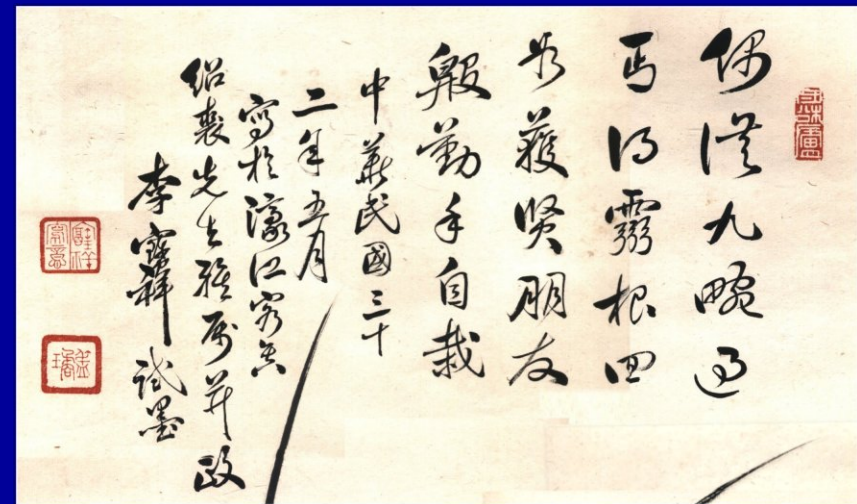 偶從九畹過
丐得靈根回
如獲賢朋友
殷勤手自栽
中華民國三十
二年五月
寫於濠江客舍
紹裘先生雅屬并政
李寶祥試墨